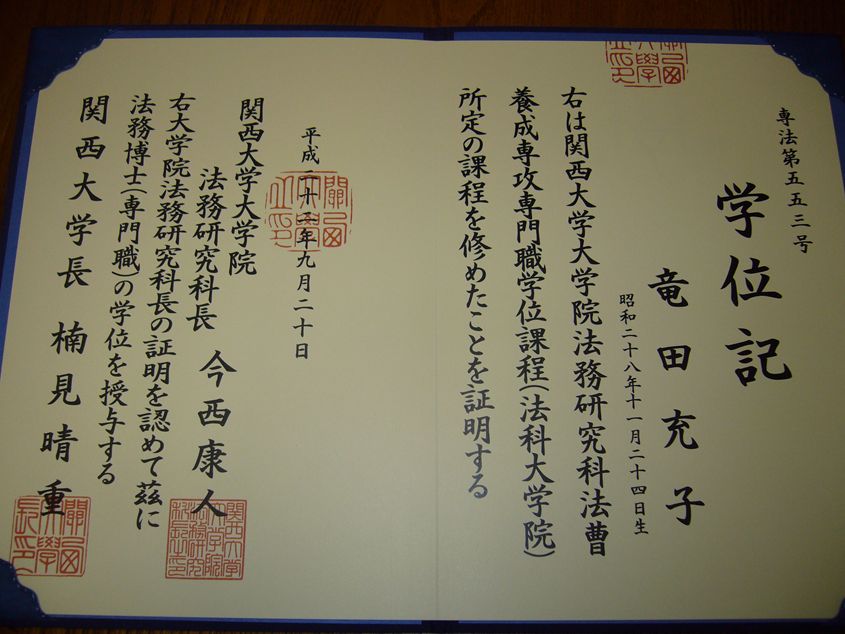 専法第五五三号
学位記
竜田充子
昭和二十八年十一月二十四日生
右は関西大学大学院法務研究科法曹
養成専攻専門職学位課程(法科大学院)
所定の課程を修めたことを証明する
平成二十年九月二十日
関西大学大学院
法務研究科長 今西康人
右大学院法務研究科長の証明を認めて茲に
法務博士(専門職)の学位を授与する
関西大学長 楠見晴重